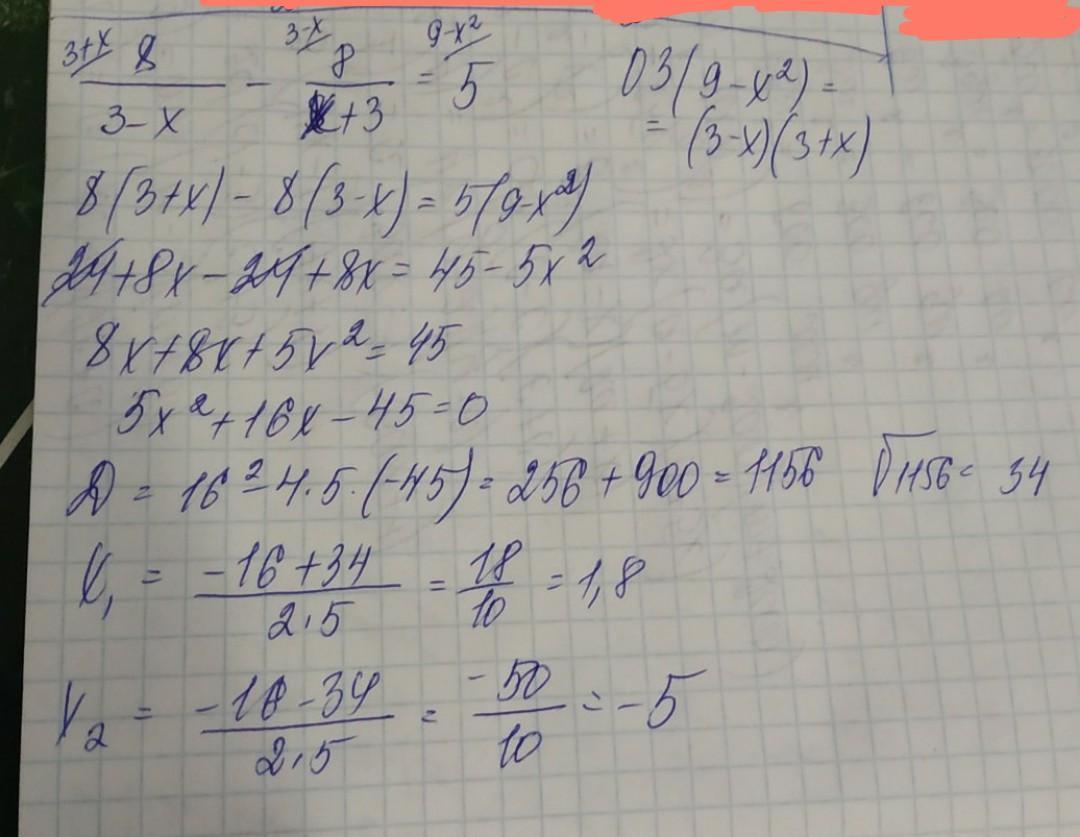 3+x/ 8 / (3-x) - 3-x/ 8 / (x+3) = 9-x²/ 5
ОЗ(9-x²)=
= (3-x)(3+x)
8(3+x) - 8(3-x) = 5(9-x²)
24+8x-24+8x = 45-5x²
8x+8x+5x² = 45
5x²+16x-45=0
D = 16²-4·5·(-45) = 256+900 = 1156 √1156 = 34
x₁ = (-16+34)/(2·5) = 18/10 = 1,8
x₂ = (-16-34)/(2·5) = -50/10 = -5